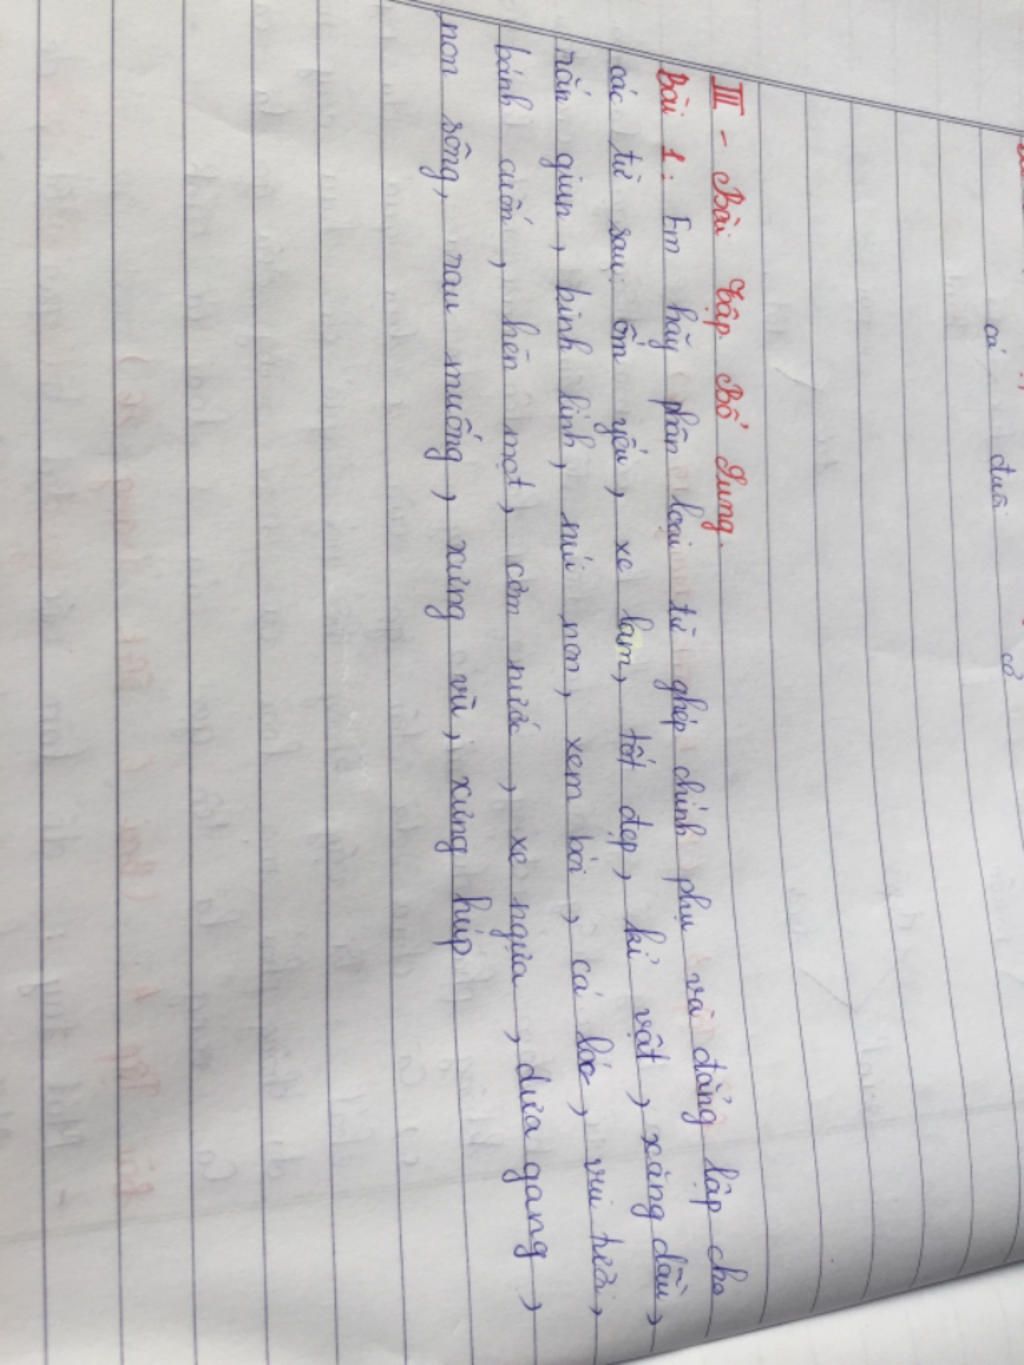 III - Bài tập bổ sung.
Bài 1: Em hãy phân loại từ ghép chính phụ và đẳng lập cho
các từ sau: ốm yếu, xe lam, tốt đẹp, kỉ vật, xăng dầu,
rắn giun, binh lính, núi non, xem bói, cá lóc, vui tươi,
bánh cuốn, hèn mạt, cơm nước, xe ngựa, dưa gang,
non sông, rau muống, xưng vù, xưng húp
cá
đuôi
cờ